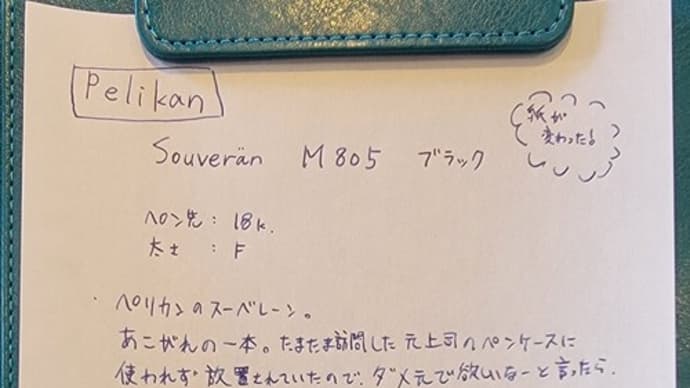 Pelikan
Souverän M805 ブラック
紙が
変わった!
ペン先 : 18k.
太さ : F
・ペリカンのスーベレーン。
あこがれの一本。たまたま訪問した元上司のペンケースに
使われず放置されていたので、ダメ元で欲しいなーと言ったら、